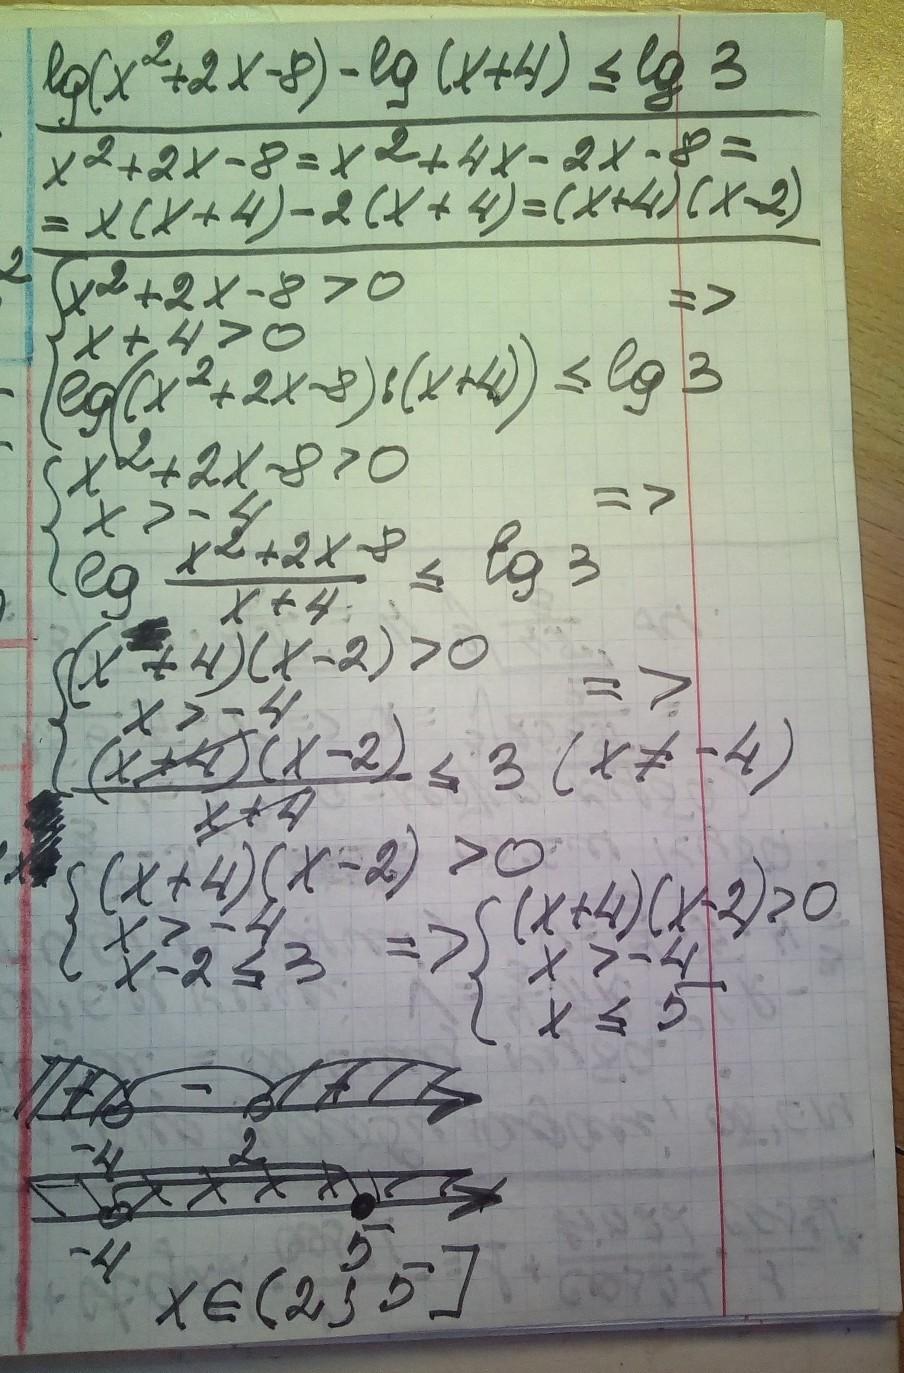 lg(x²+2x-8)-lg(x+4)≤lg 3
x²+2x-8=x²+4x-2x-8=
=x(x+4)-2(x+4)=(x+4)(x-2)
{x²+2x-8>0 =>
x+4>0
lg((x²+2x-8):(x+4))≤lg 3
{x²+2x-8>0
x>-4 =>
lg (x²+2x-8)/(x+4) ≤ lg 3
{(x+4)(x-2)>0 =>
x>-4
(x+4)(x-2)/(x+4) ≤ 3 (x≠-4)
{(x+4)(x-2)>0
x>-4
x-2≤3
=> {(x+4)(x-2)>0
x>-4
x≤5
+ - +
-4 2
-4 5
x∈(2;5]